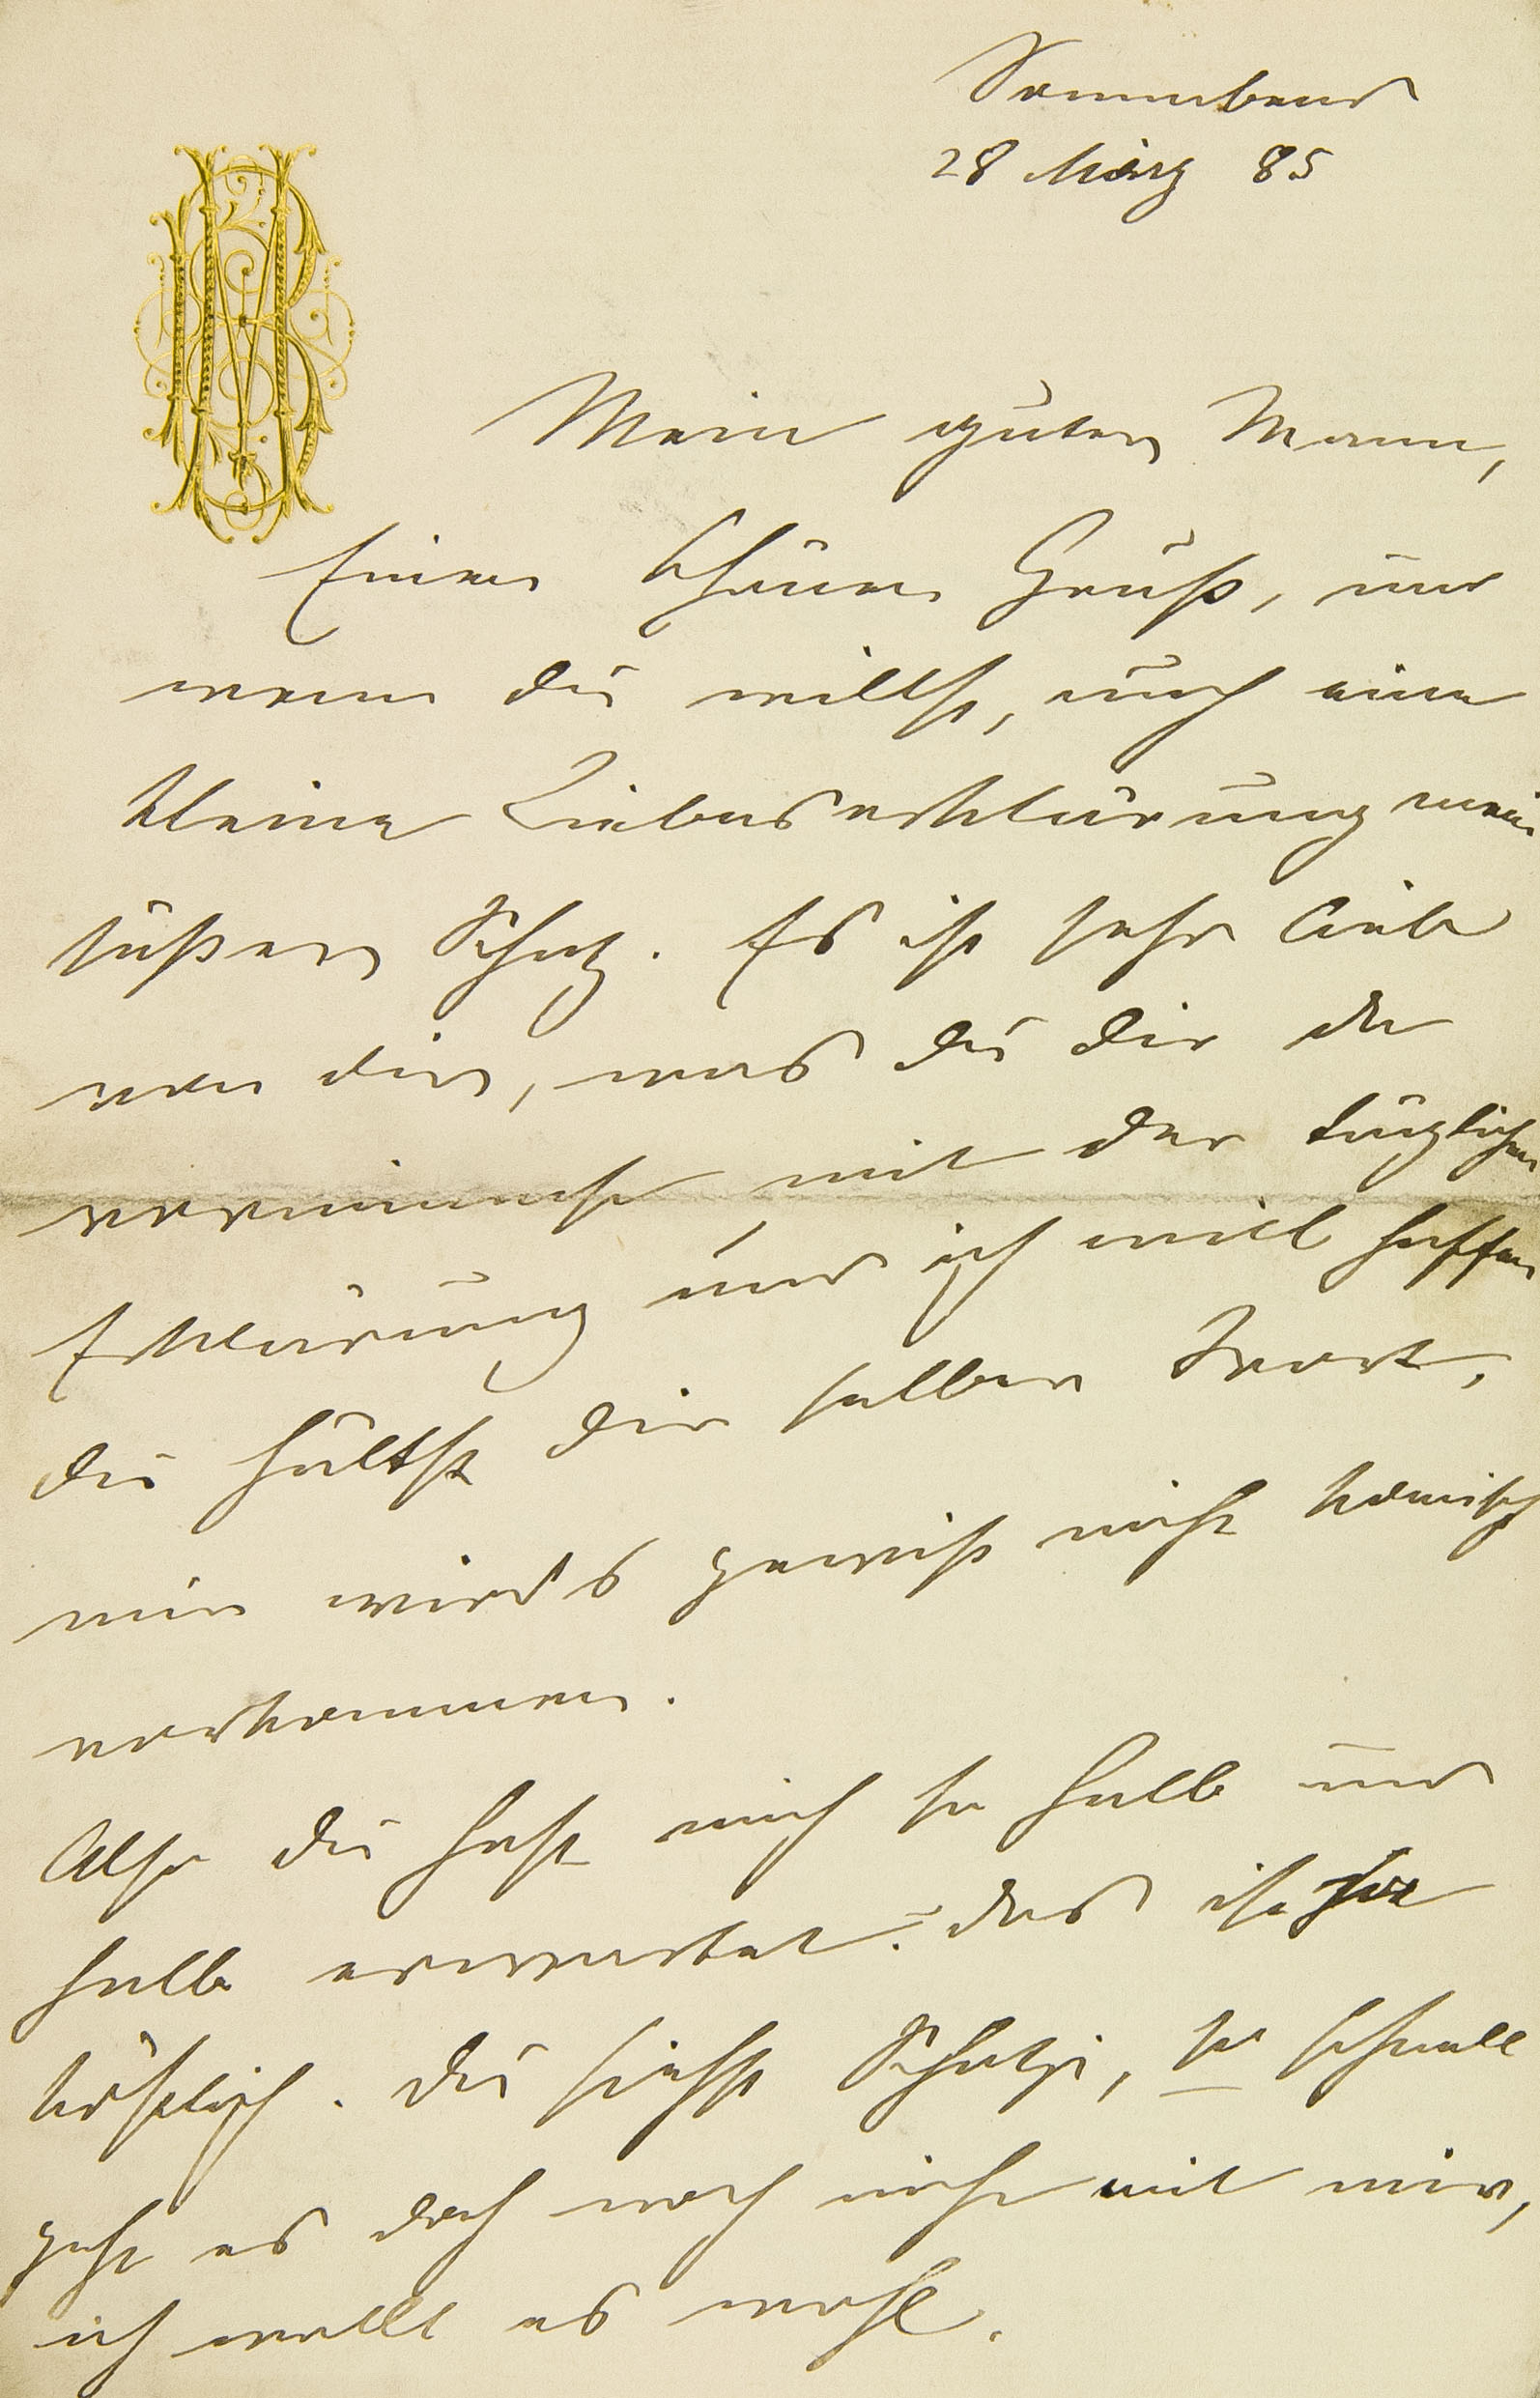 Sonnabend
28 März 85
Mein guter Mann,
Einen schönen Gruß, und
wenn du willst, auch eine
kleine Liebeserklärung mein
süßer Schatz. Es ist sehr lieb
von dir, was du dir da
vornimmst, mit der täglichen
Erklärung und ich will hoffen
du hältst dir selber Wort,
mir wird's gewiß nicht komisch
vorkommen.
Also du hast mich so halb und
halb erwartet: das ist
köstlich. Du siehst Schatzi, so schnell
geht es doch noch nicht mit mir,
ich wollt es wohl.